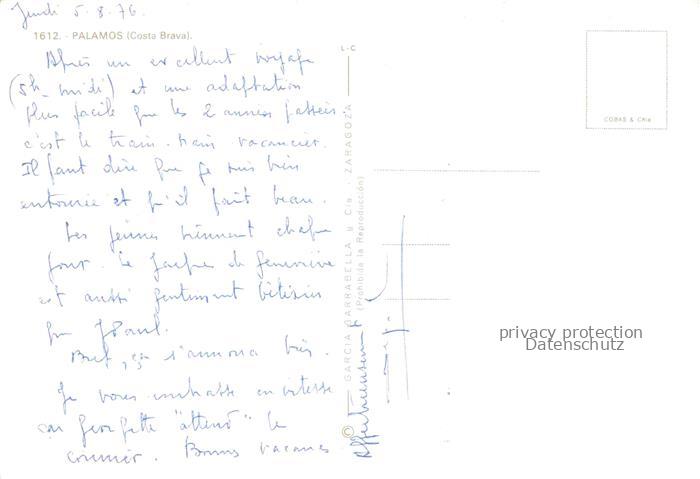 Jeudi 5.8.76.
1612. - PALAMOS (Costa Brava).
Après un excellent voyage
(5h - midi) et une adaptation
plus facile que les 2 années passées
c'est le train-train vacancier.
Il faut dire que je suis bien
entourée et qu'il fait beau.
Les jeunes viennent chaque
jour. Le Jacques de Geneviève
est aussi gentiment
que JPaul.
Bref, ça s'annonce bien.
Je vous embrasse en vitesse
car Georgette "attend" le
courrier. Bonnes vacances
Affectueusement
L-C
© GARCIA GARRABELLA y Cia. - ZARAGOZA
(Prohibida la Reproducción)
COBAS & Cia
privacy protection
Datenschutz